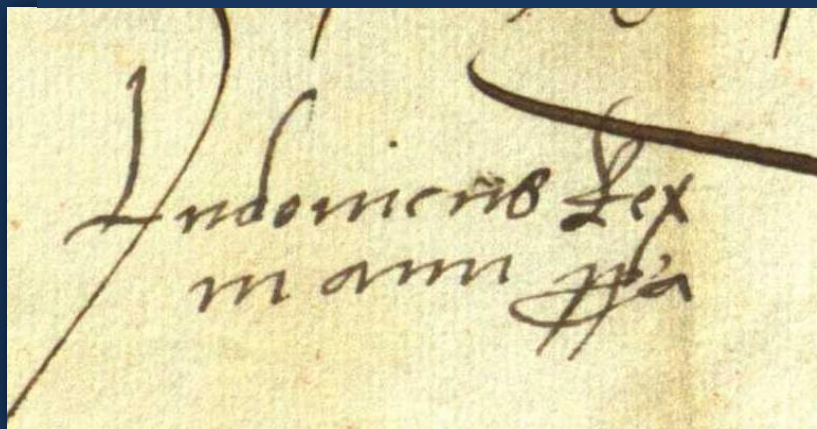 Ludovicus Rex
manu ppa